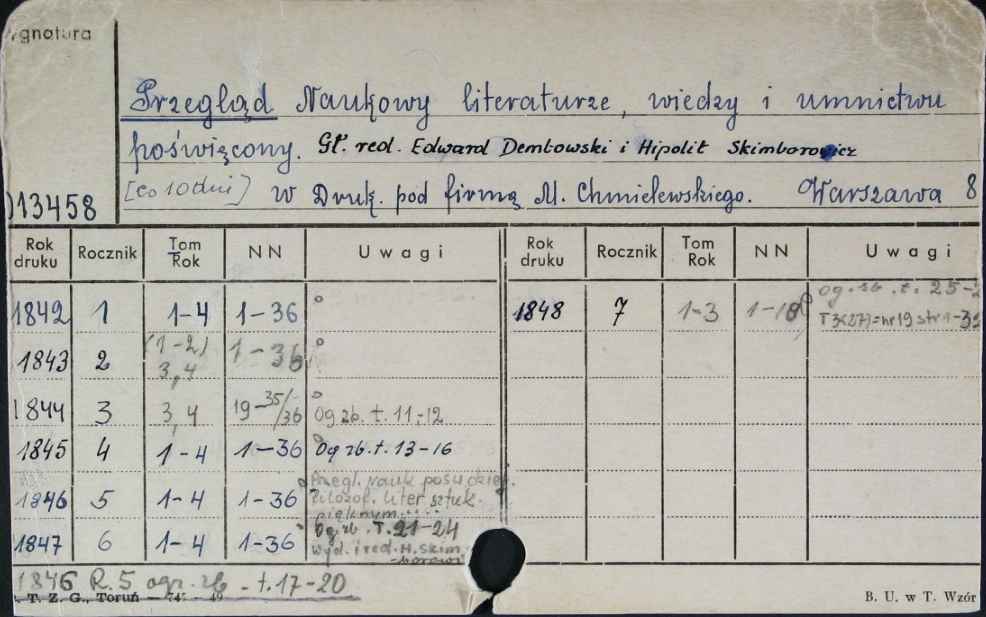 Sygnatura
Przegląd Naukowy literaturze, wiedzy i umnictwu
poświęcony. Gł. red. Edward Dembowski i Hipolit Skimborowicz
[co 10 dni] w Druk. pod firmą M. Chmielewskiego. Warszawa 8
013458
Rok druku | Rocznik | Tom Rok | NN | Uwagi | Rok druku | Rocznik | Tom Rok | NN | Uwagi
1842 | 1 | 1-4 | 1-36 | | 1848 | 7 | 1-3 | 1-18 | og. zb. t. 25-2
T3(27)=nr 19 str 1-32
1843 | 2 | (1-2) 3,4 | 1-36
1844 | 3 | 3,4 | 19-35/36 | Og zb. t. 11-12
1845 | 4 | 1-4 | 1-36 | Og zb. t. 13-16
1846 | 5 | 1-4 | 1-36 | Przegl. Nauk pośw dziej.
filozof. liter sztuk.
pięknym.....
1847 | 6 | 1-4 | 1-36 | Og zb. T. 21-24
wyd. i red. H. Skim-
borowi
1846 R. 5 ogr. zb - t. 17-20
T. Z. G., Toruń — 747 - 49
B. U. w T. Wzór